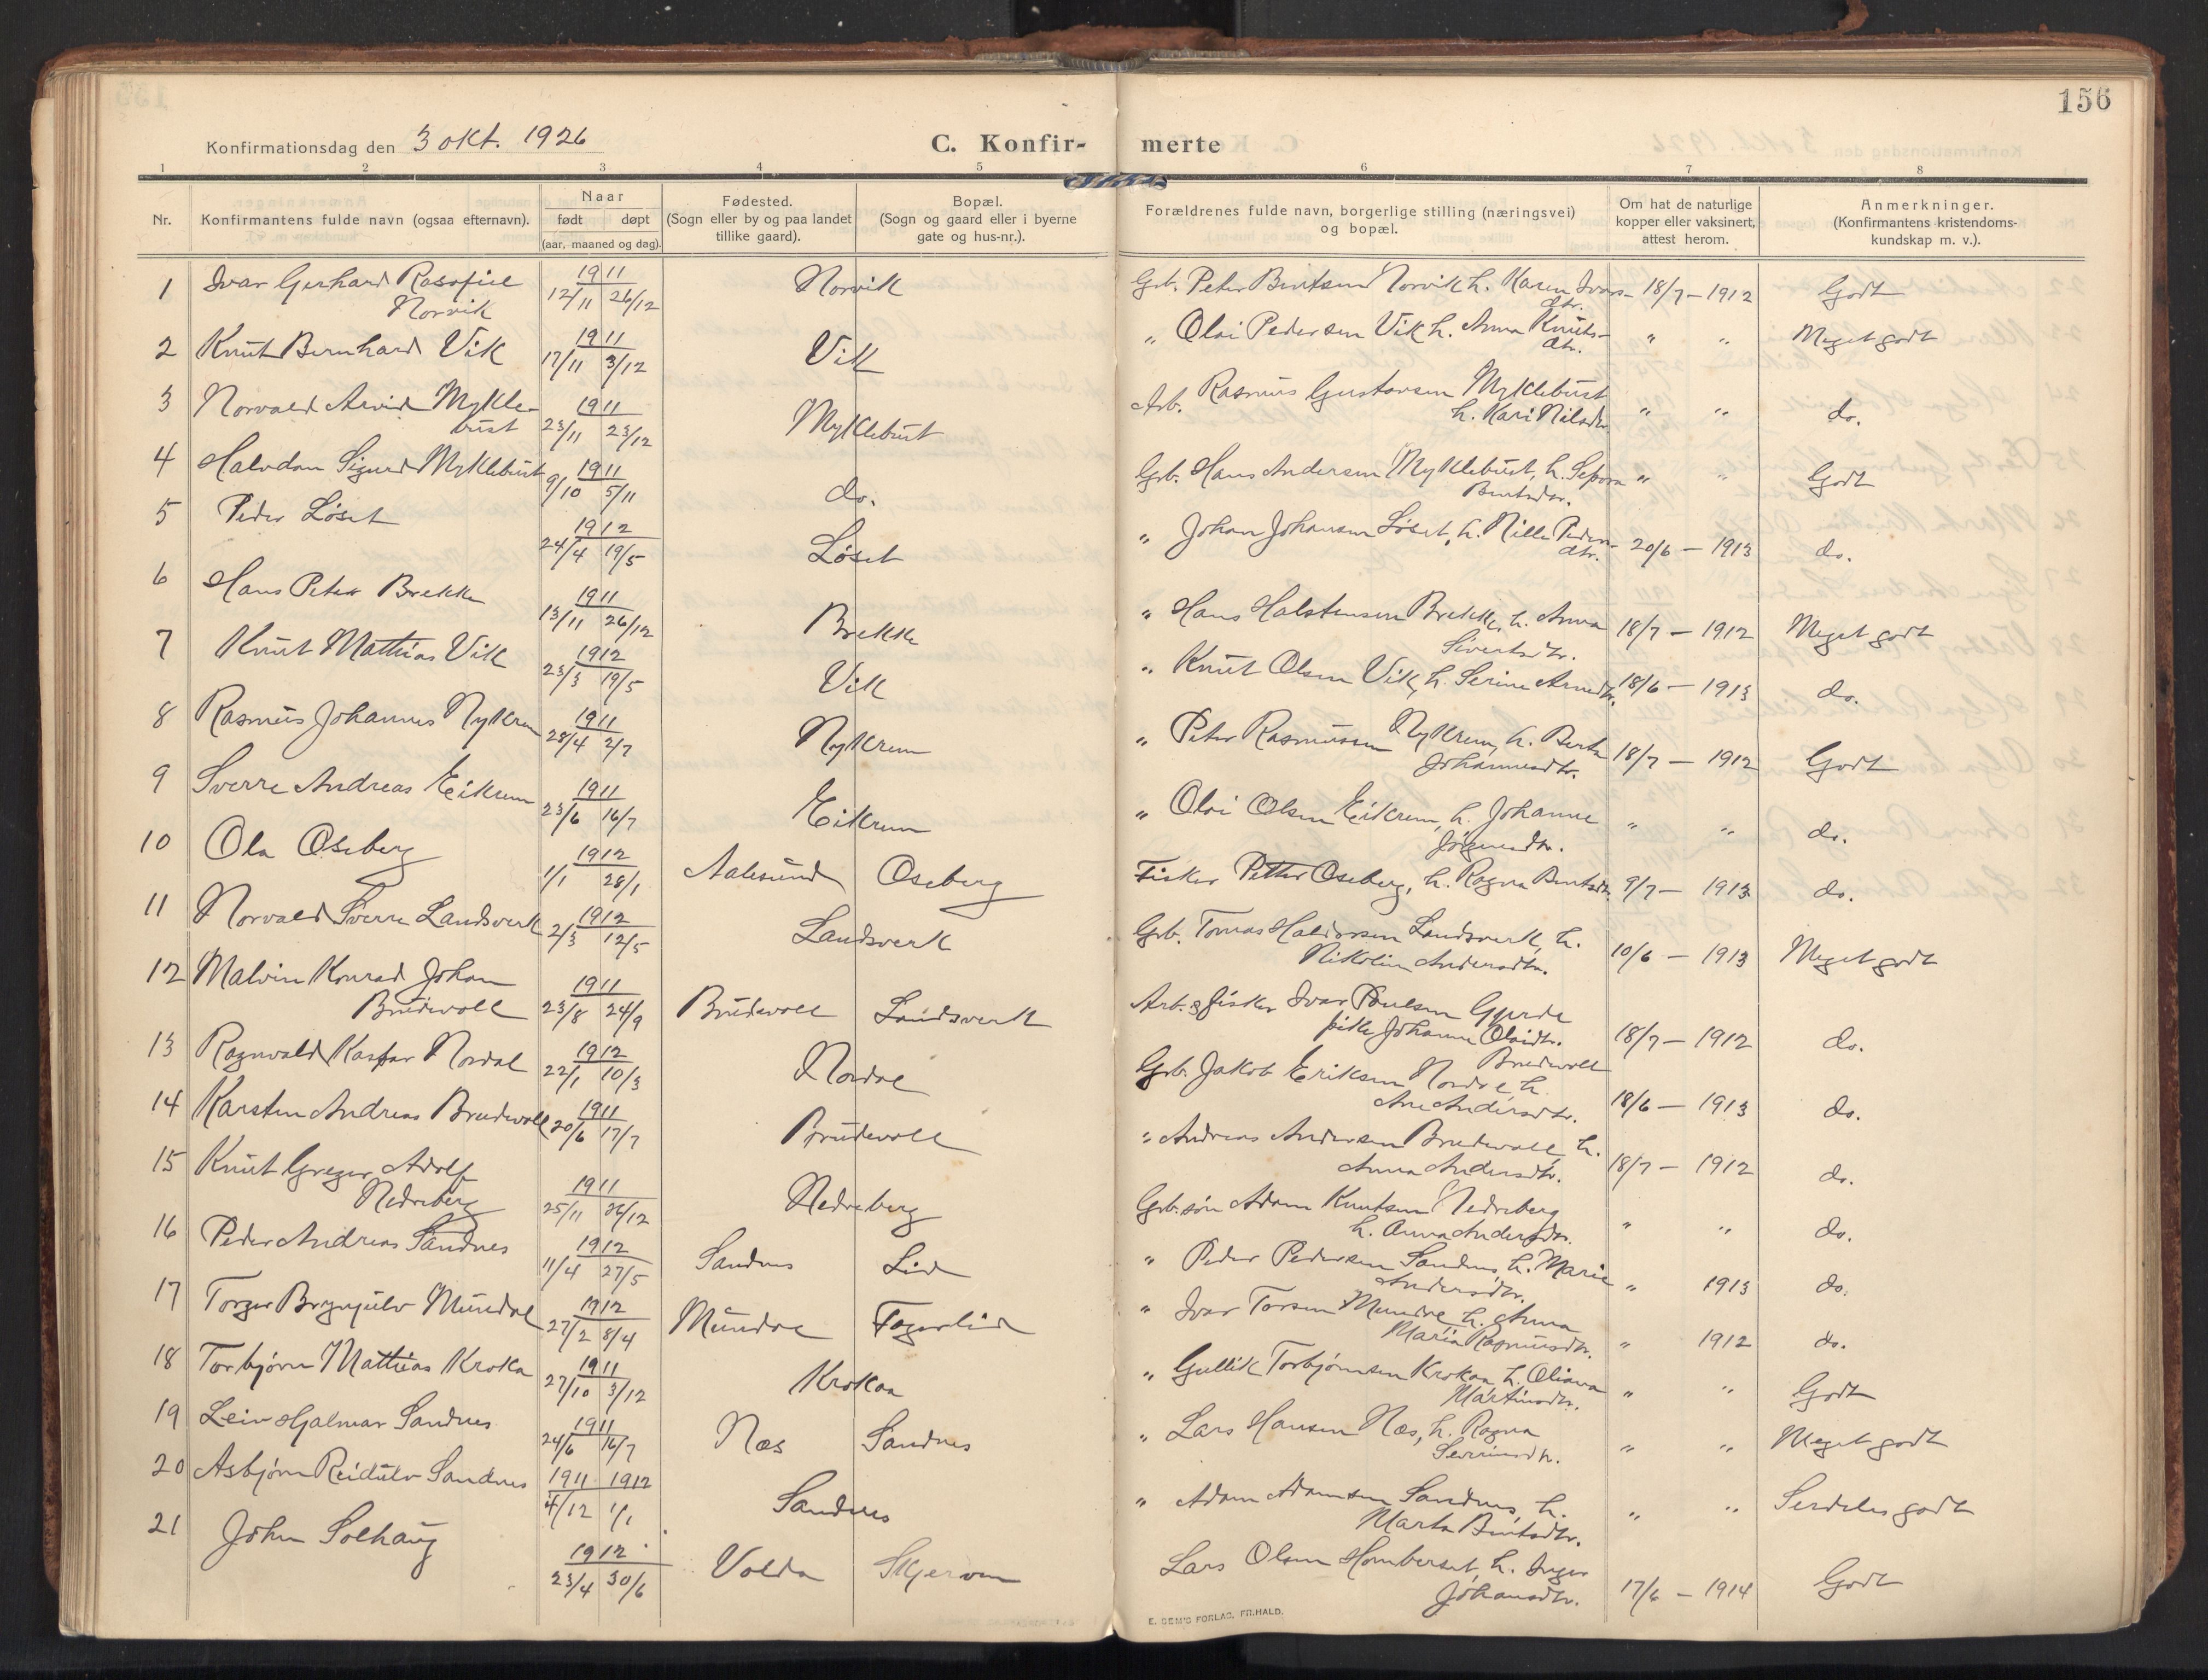 156
Konfirmationsdag den 3 okt. 1926
C. Konfir- merte
1 2 3 4 5 6 7 8
Nr.
Konfirmantens fulde navn (ogsaa efternavn).
Naar
født døpt
(aar, maaned og dag).
Fødested.
(Sogn eller by og paa landet
tillike gaard).
Bopæl.
(Sogn og gaard eller i byerne
gate og hus-nr.).
Forældrenes fulde navn, borgerlige stilling (næringsvei)
og bopæl.
Om hat de naturlige
kopper eller vaksinert,
attest herom.
Anmerkninger.
(Konfirmantens kristendoms-
kundskap m. v.).
1 Ivar Gerhard Norvik 1911 12/11 26/12 Norvik Grb. Peter Bentsen Norvik h. Karen Ivars- dtr. 18/7 – 1912 Godt
2 Knut Bernhard Vik 1911 17/11 3/12 Vik " Olai Pedersen Vik h. Anna Knuts- dtr. " " Meget godt
3 Norvald Arvid Mykle- bust 1911 23/11 23/12 Myklebust Arb. Rasmus Gustavsen Myklebust h. Kari Nilsdtr " " do.
4 Halvdan Sigurd Myklebust 1911 9/10 5/11 do. Grb. Hans Andersen Myklebust, h. Sefora Bentsdtr. " " Godt
5 Peder Løset 1912 24/4 19/5 Løset " Johan Johansen Løset, h. Nille Peders- dtr. 20/6 – 1913 do.
6 Hans Peter Brekke 1911 13/11 26/12 Brekke " Hans Halstensen Brekke, h. Anna Sivertsdtr. 18/7 – 1912 Meget godt
7 Knut Mathias Vik 1912 23/3 19/5 Vik " Knut Olsen Vik, h. Serine Arnedtr. 18/6 – 1913 do.
8 Rasmus Johannes Nykrem 1911 28/4 2/7 Nykrem " Peter Rasmussen Nykrem, h. Berta Johannesdtr. 18/7 – 1912 Godt
9 Sverre Andreas Eikrem 1911 23/6 16/7 Eikrem " Olai Olsen Eikrem, h. Johanne Jørgensdtr. " " do.
10 Ola Oseberg 1912 1/1 28/1 Aalesund Oseberg Fisker Petter Oseberg, h. Ragna Bentsdtr. 9/7 – 1913 do.
11 Norvald Sverre Landsverk 1912 2/3 12/5 Landsverk Grb. Tomas Haldorsen Landsverk, h. Nikoline Andersdtr. 10/6 – 1913 Meget godt
12 Malvin Konrad Johan Brudevoll 1911 23/8 24/9 Brudevoll Landsverk Arb. & fisker Ivar Poulsen Gjerde pike Johanne Olaidtr. Brudevoll 18/7 – 1912 do.
13 Ragnvald Kaspar Nordal 1912 22/1 10/3 Nordal Grb. Jakob Eriksen Nordal h. Ane Andersdtr. 18/6 – 1913 do.
14 Karsten Andreas Brudevoll 1911 20/6 17/7 Brudevoll " Andreas Andersen Brudevoll, h. Anna Andersdtr. 18/7 – 1912 do.
15 Knut Greger Adolf Nedreberg 1911 25/11 26/12 Nedreberg Grb. søn Adam Knutsen Nedreberg h. Anna Andersdtr. " " do.
16 Peder Andreas Sandnes 1912 11/4 27/5 Sandnes Lid " Peder Pedersen Sandnes, h. Marie Andersdtr. " 1913 do.
17 Torger Brynjulv Mundal 1912 27/2 8/4 Mundal Fagerlid " Ivar Torsen Mundal h. Anna Maria Rasmusdtr. " 1912 do.
18 Torbjørn Mathias Kroka 1911 27/10 3/12 Krokaa " Gullik Torbjørnsen Krokaa h. Oliana Martinsdtr. " " Godt
19 Leiv Hjalmar Sandnes 1911 24/6 16/7 Næs Sandnes " Lars Hansen Næs, h. Ragna Severinsdtr. " " Meget godt
20 Asbjørn Reidulv Sandnes 1911 1912 4/12 1/1 Sandnes " Adam Adamsen Sandnes, h. Marta Bentsdtr. " " Serdeles godt
21 John Solhaug 1912 23/4 30/6 Volda Skjerven Lars Olsen Homberset, h. Inger Johansdtr. 17/6 – 1914 Godt
E. SEM'S FORLAG, FR.HALD.